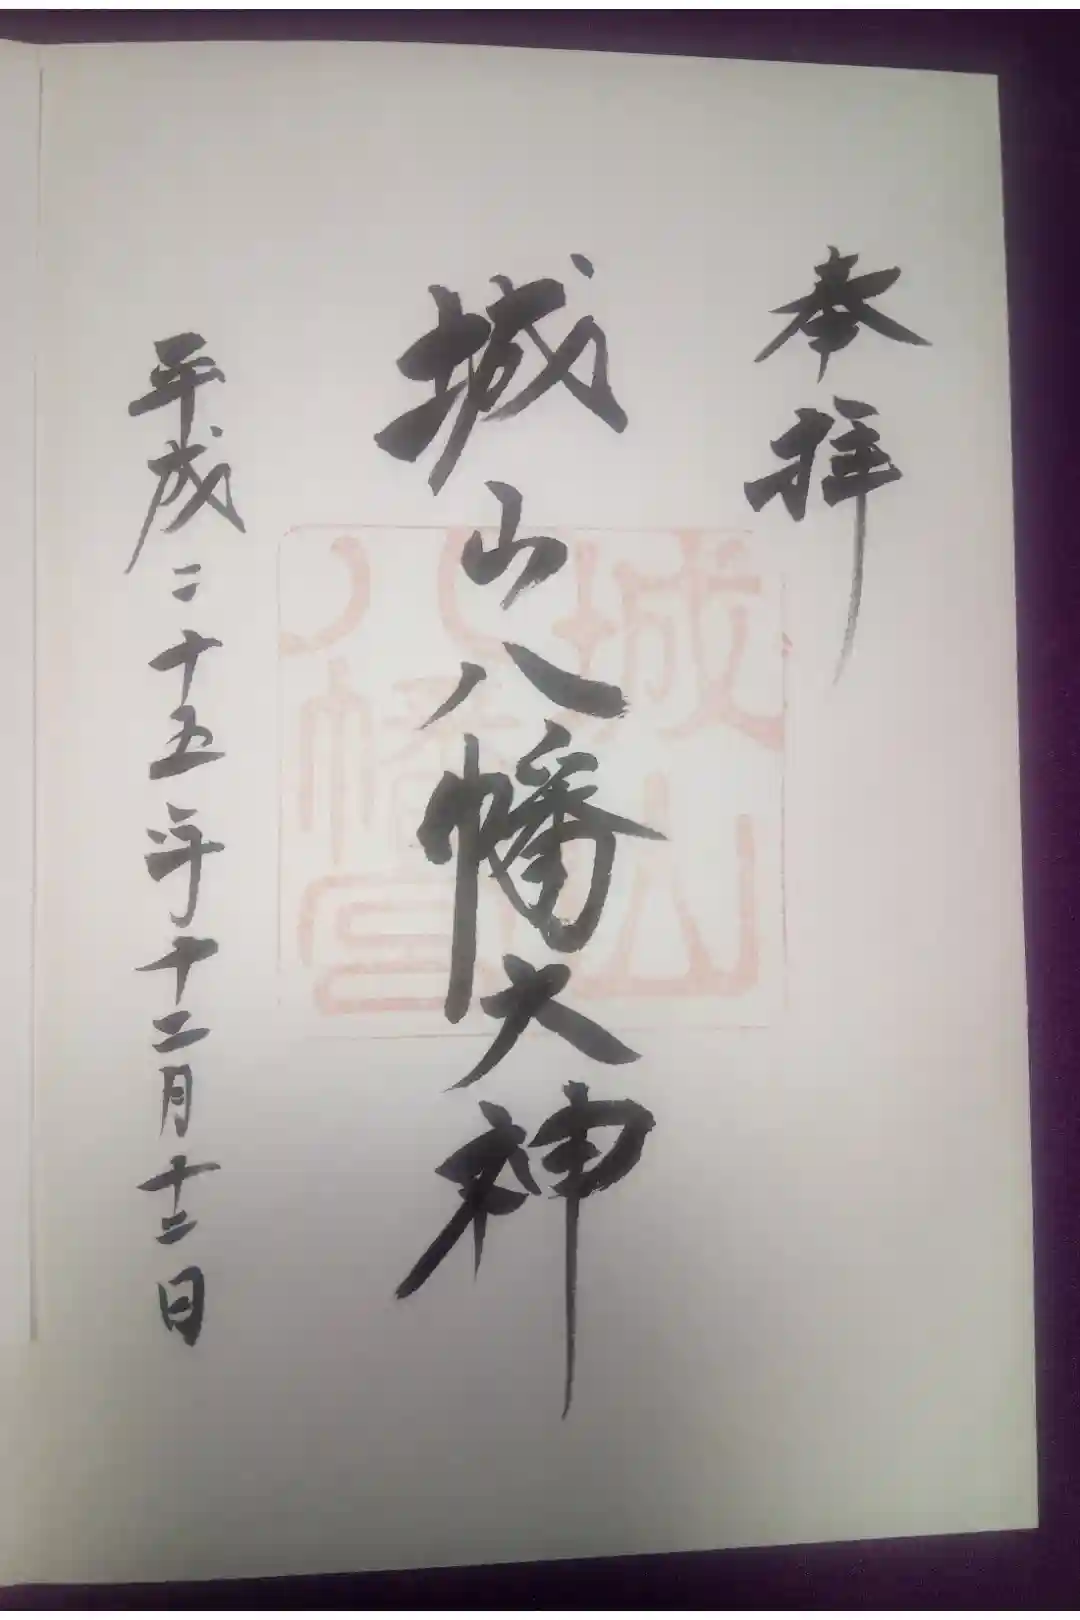 奉拝
城山八幡大神
平成二十五年十二月十二日
城山
八幡宮